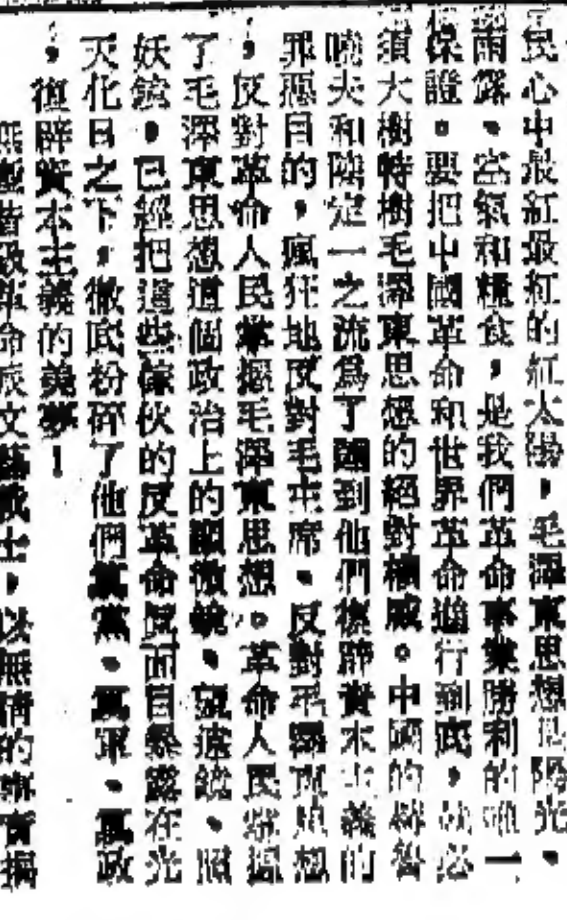 民心中最紅最紅的紅太陽,毛澤東思想是陽光、
雨露、空氣和糧食,是我們革命事業勝利的唯一
保證。要把中國革命和世界革命進行到底,就必
須大樹特樹毛澤東思想的絕對權威。中國的赫魯
曉夫和陸定一之流爲了達到他們復辟資本主義的
罪惡目的,瘋狂地反對毛主席、反對毛澤東思想
,反對革命人民掌握毛澤東思想。革命人民掌握
了毛澤東思想這個政治上的顯微鏡、望遠鏡、照
妖鏡,已經把這些傢伙的反革命眞面目暴露在光
天化日之下,徹底粉碎了他們篡黨、篡軍、篡政
,復辟資本主義的美夢!
無產階級革命派文藝戰士,以無情的事實揭